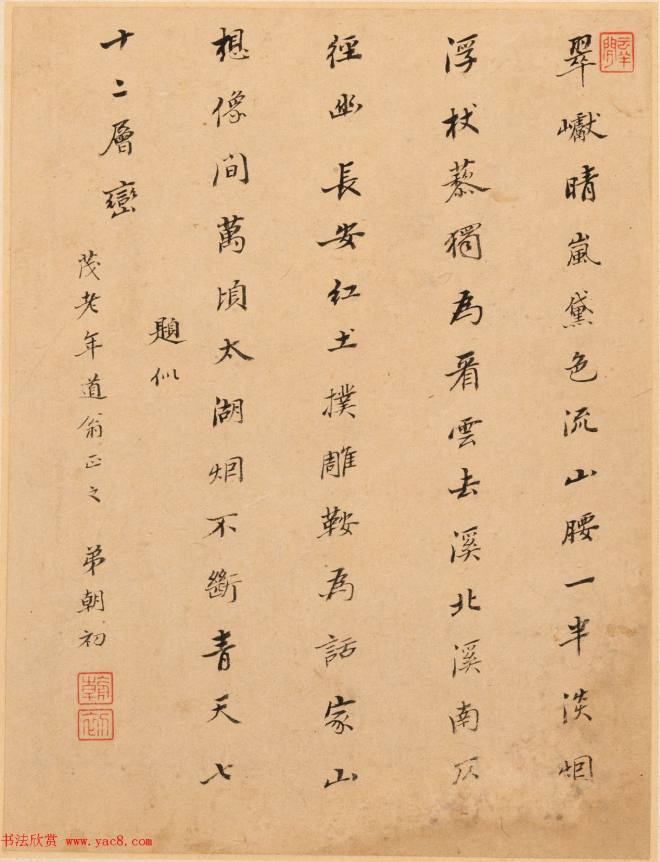 翠巘晴嵐黛色流山腰一半淡烟
浮杖藜獨為看雲去溪北溪南仄
徑幽長安紅土撲雕鞍為話家山
想像間萬頃太湖烟不斷青天七
十二層巒
題似
茂老年道翁正之 弟朝初
书法欣赏 www.yac8.com